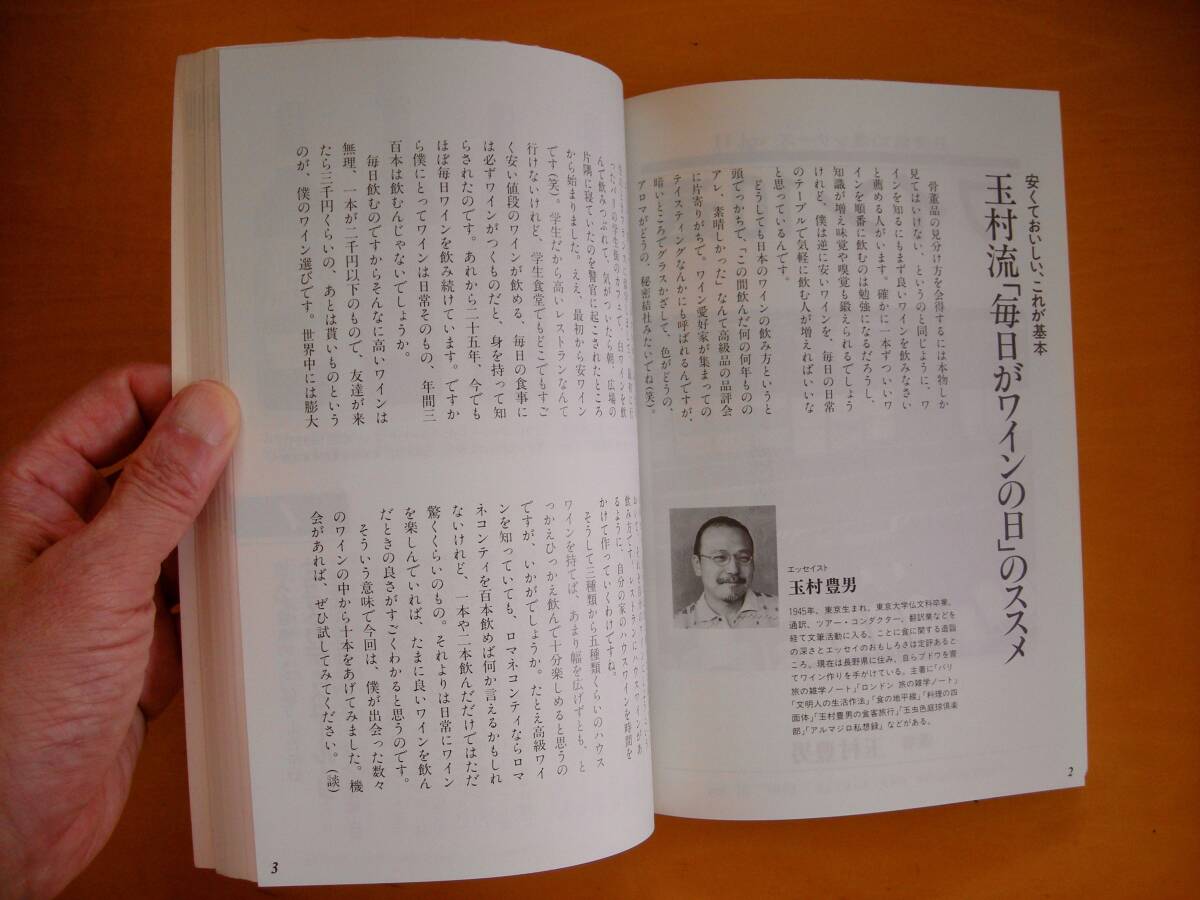 安くておいしい、これが基本
玉村流「毎日がワインの日」のススメ
骨董品の見分け方を会得するには本物しか
見てはいけない、というのと同じように、ワ
インを知るにもまず良いワインを飲みなさい
と薦める人がいます。確かに一本ずついいワ
インを順番に飲むのは勉強になるだろうし、
知識が増え味覚や嗅覚も鍛えられるでしょう
けれど、僕は逆に安いワインを、毎日の日常
のテーブルで気軽に飲む人が増えればいいな
と思っているんです。
どうしても日本のワインの飲み方というと
頭でっかちで、「この間飲んだ何の何年ものの
アレ、素晴しかった」なんて高級品の品評会
に片寄りがちで。ワイン愛好家が集まっての
テイスティングなんかにも呼ばれるんですが、
暗いところでグラスかざして、色がどうの、
アロマがどうの、秘密結社みたいでね(笑)。
エッセイスト
玉村豊男
1945年、東京生まれ。東京大学仏文科卒業。
通訳、ツアー・コンダクター、翻訳業などを
経て文筆活動に入る。ことに食に関する造園
の深さとエッセイのおもしろさは定評あると
ころ。現在は長野県に住み、自らブドウを育
ててワイン作りを手がけている。主著に「パリ
旅の雑学ノート」「ロンドン 旅の雑学ノート」
「文明人の生活作法」「食の地平線」「料理の四
面体」「玉村豊男の食客旅行」「玉虫色庭球倶楽
部」「アルマジロ私想録」などがある。
2
んで飲みつぶれて、気がついたら朝、広場の
片隅に寝ていたのを警官に起こされたところ
から始まりました。ええ、最初から安ワイン
です(笑)。学生だから高いレストランなんて
行けないけれど、学生食堂でもどこでもすご
く安い値段のワインが飲める、毎日の食事に
は必ずワインがつくものだと、身を持って知
らされたのです。あれから二十五年、今でも
ほぼ毎日ワインを飲み続けています。ですか
ら僕にとってワインは日常そのもの、年間三
百本は飲むんじゃないでしょうか。
毎日飲むのですからそんなに高いワインは
無理、一本が二千円以下のもので、友達が来
たら三千円くらいの、あとは貰いものという
のが、僕のワイン選びです。世界中には膨大
飲み方です。レストランにハウスワインがあ
るように、自分の家のハウスワインを時間を
かけて作っていくわけですね。
そうして三種類から五種類くらいのハウス
ワインを持てば、あまり幅を広げずとも、と
っかえひっかえ飲んで十分楽しめると思うの
ですが、いかがでしょうか。たとえ高級ワイ
ンを知っていても、ロマネコンティならロマ
ネコンティを百本飲めば何か言えるかもしれ
ないけれど、一本や二本飲んだだけではただ
驚くくらいのもの。それよりは日常にワイン
を楽しんでいれば、たまに良いワインを飲ん
だときの良さがすごくわかると思うのです。
そういう意味で今回は、僕が出会った数々
のワインの中から十本をあげてみました。機
会があれば、ぜひ試してみてください。(談)
3